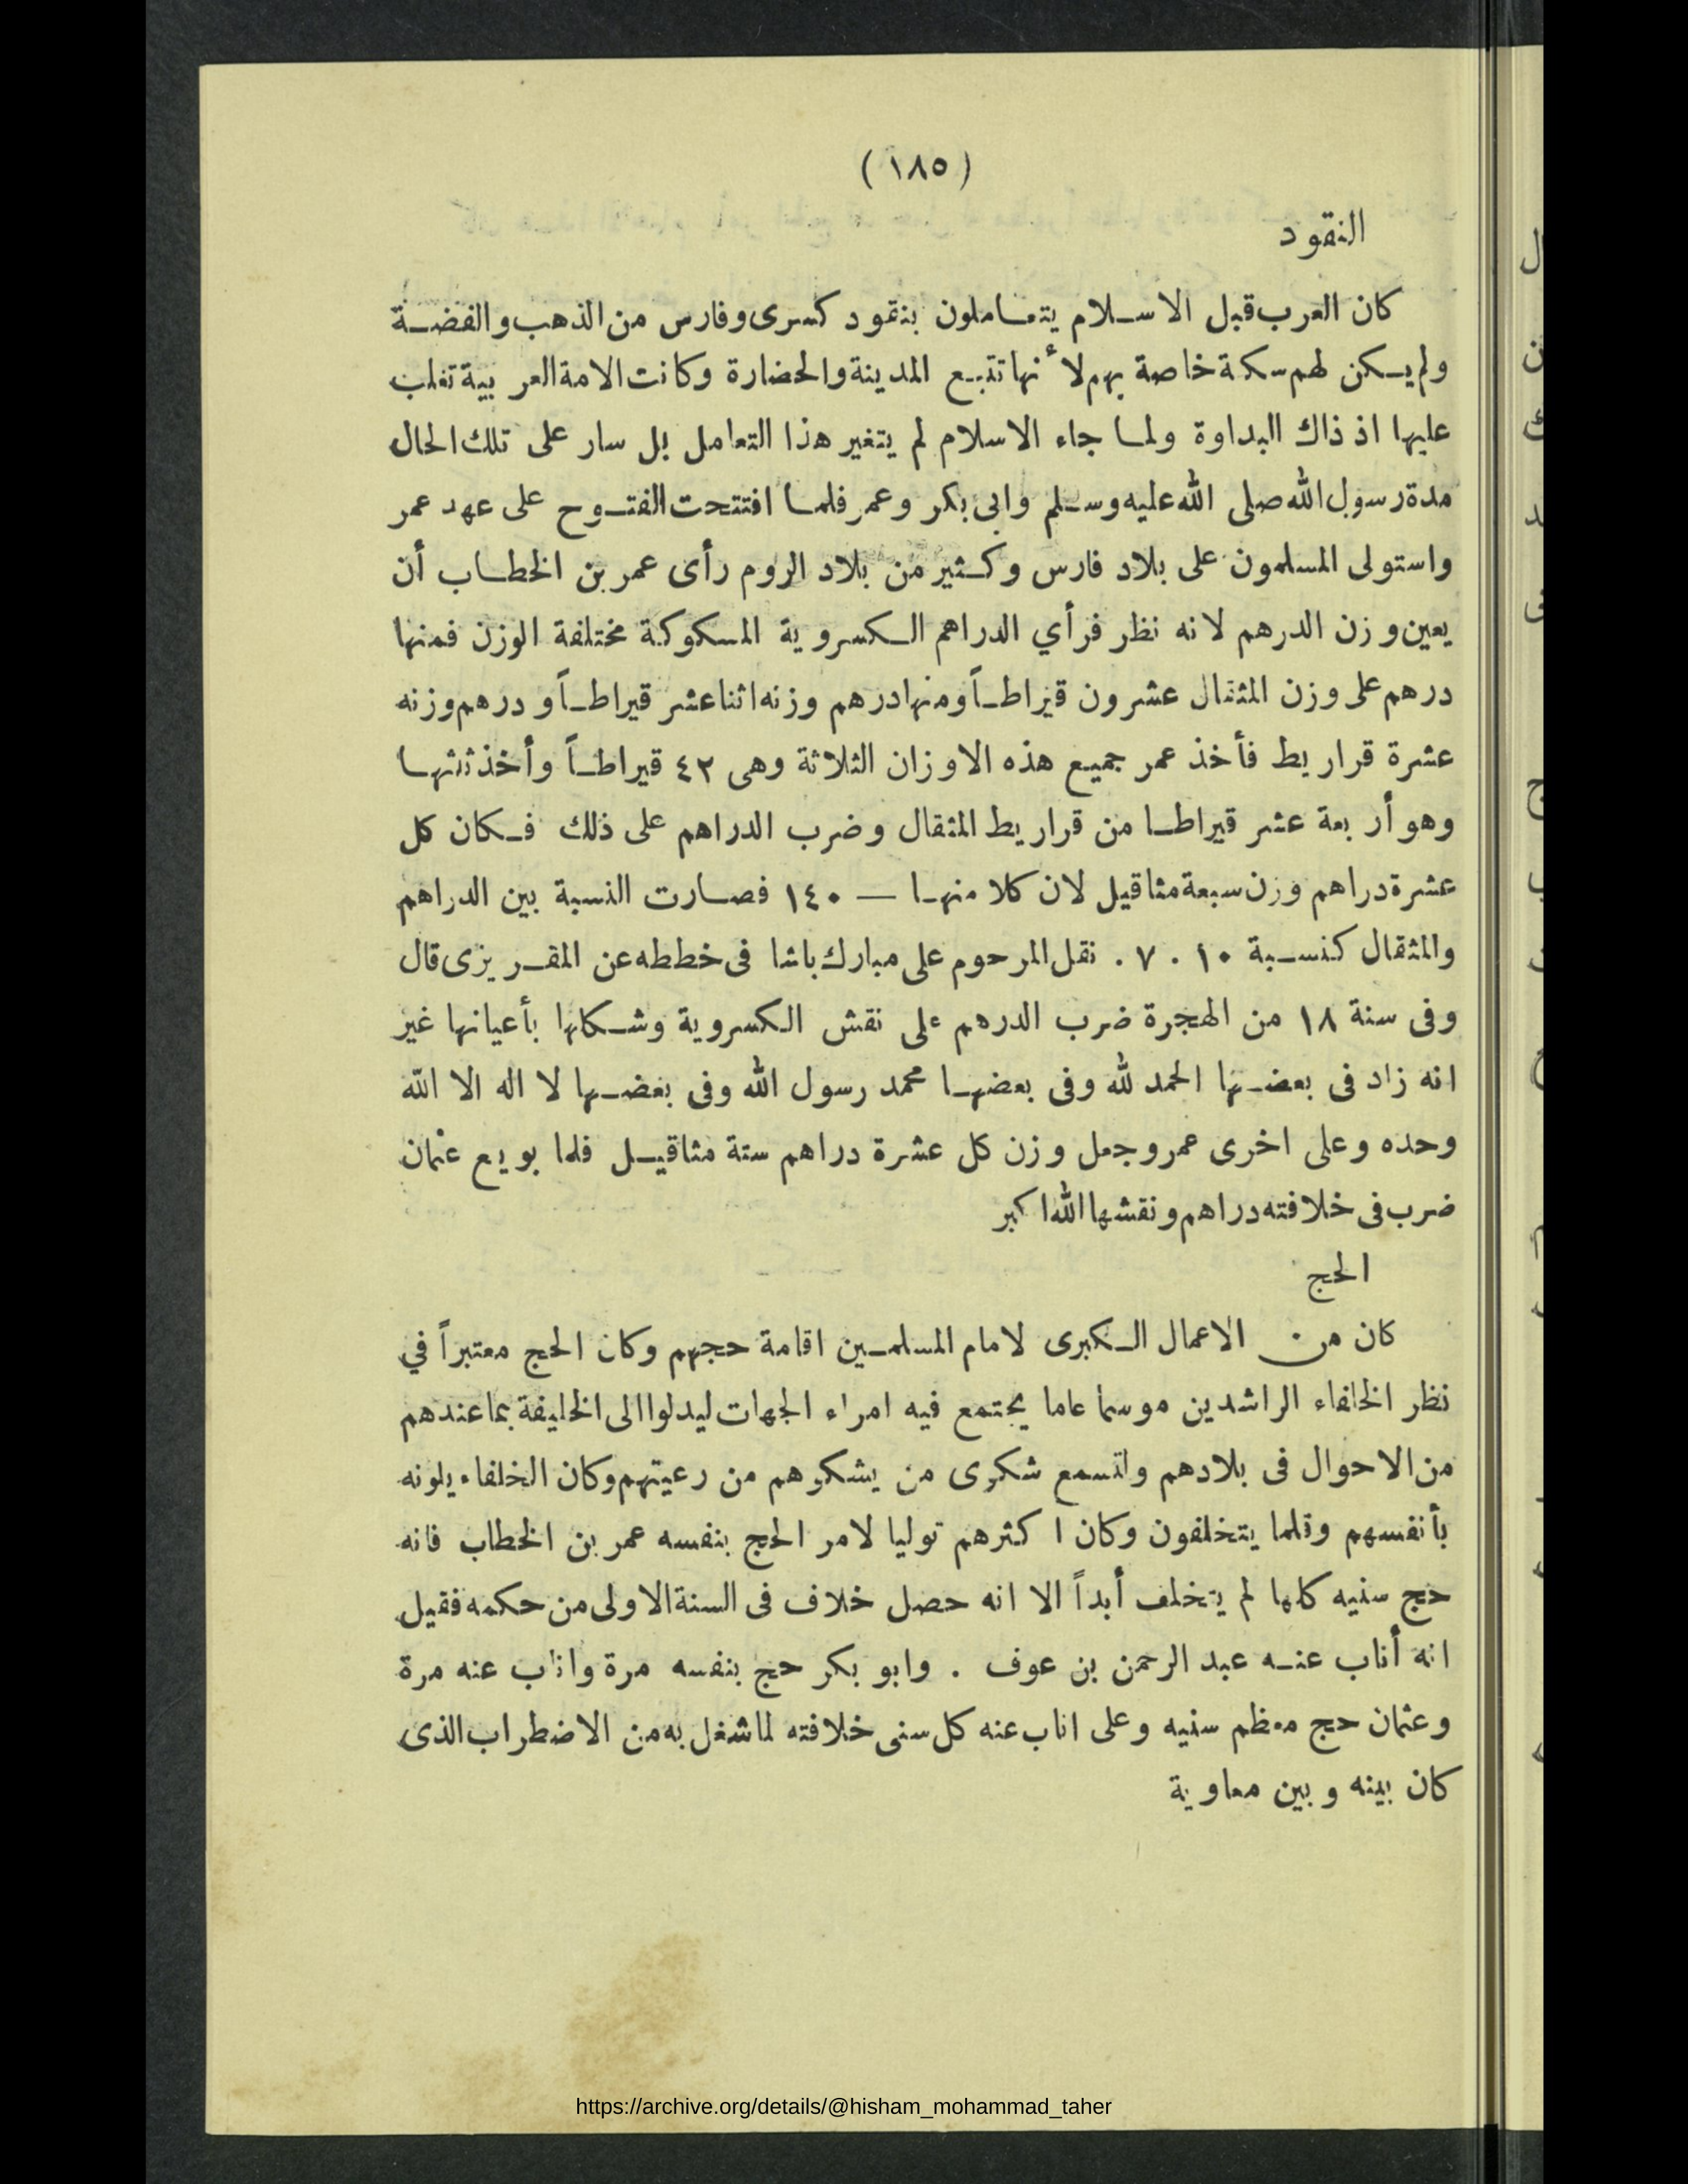 (١٨٥)
النقود
كان العرب قبل الاسلام يتعاملون بنقود كسرى وفارس من الذهب والفضة
ولم يكن لهم سكة خاصة بهم لأنها تتبع المدينة والحضارة وكانت الامة العربية تغلب
عليها اذ ذاك البداوة ولما جاء الاسلام لم يتغير هذا التعامل بل سار على تلك الحال
مدة رسول الله صلى الله عليه وسلم وابى بكر وعمر فلما افتتحت الفتوح على عهد عمر
واستولى المسلمون على بلاد فارس وكثير من بلاد الروم رأى عمر بن الخطاب أن
يعين وزن الدرهم لانه نظر فرأي الدراهم الكسروية المسكوكة مختلفة الوزن فمنها
درهم على وزن المثقال عشرون قيراطاً ومنها درهم وزنه اثنا عشر قيراطاً ودرهم وزنه
عشرة قراريط فأخذ عمر جميع هذه الاوزان الثلاثة وهى ٤٢ قيراطاً وأخذ ثلثها
وهو أربعة عشر قيراطا من قراريط المثقال وضرب الدراهم على ذلك فكان كل
عشرة دراهم وزن سبعة مثاقيل لان كلا منها — ١٤٠ فصارت النسبة بين الدراهم
والمثقال كنسبة ١٠ . ٧ . نقل المرحوم على مبارك باشا فى خططه عن المقريزى قال
وفى سنة ١٨ من الهجرة ضرب الدرهم على نقش الكسروية وشكلها بأعيانها غير
انه زاد فى بعضها الحمد لله وفى بعضها محمد رسول الله وفى بعضها لا اله الا الله
وحده وعلى اخرى عمر وجعل وزن كل عشرة دراهم ستة مثاقيل فلما بويع عثمان
ضرب فى خلافته دراهم ونقشها الله اكبر
الحج
كان من الاعمال الكبرى لامام المسلمين اقامة حجهم وكان الحج معتبراً في
نظر الخلفاء الراشدين موسما عاما يجتمع فيه امراء الجهات ليدلوا الى الخليفة بما عندهم
من الاحوال فى بلادهم ولتسمع شكوى من يشكوهم من رعيتهم وكان الخلفاء يلونه
بأنفسهم وقلما يتخلفون وكان اكثرهم توليا لامر الحج بنفسه عمر بن الخطاب فانه
حج سنيه كلها لم يتخلف أبداً الا انه حصل خلاف فى السنة الاولى من حكمه فقيل
انه أناب عنه عبد الرحمن بن عوف . وابو بكر حج بنفسه مرة واناب عنه مرة
وعثمان حج معظم سنيه وعلى اناب عنه كل سنى خلافته لما شغل به من الاضطراب الذى
كان بينه وبين معاوية
https://archive.org/details/@hisham_mohammad_taher